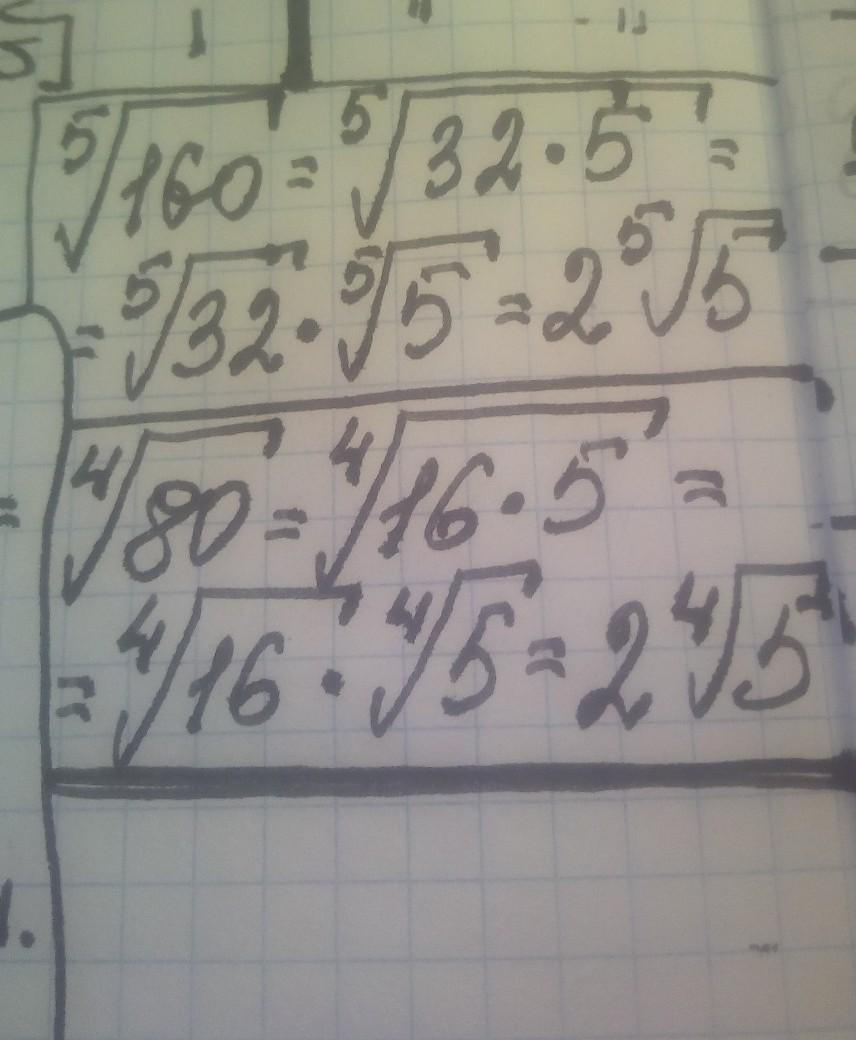 ⁵√160 = ⁵√32·5 =
= ⁵√32 · ⁵√5 = 2 ⁵√5
⁴√80 = ⁴√16·5 =
= ⁴√16 · ⁴√5 = 2 ⁴√5